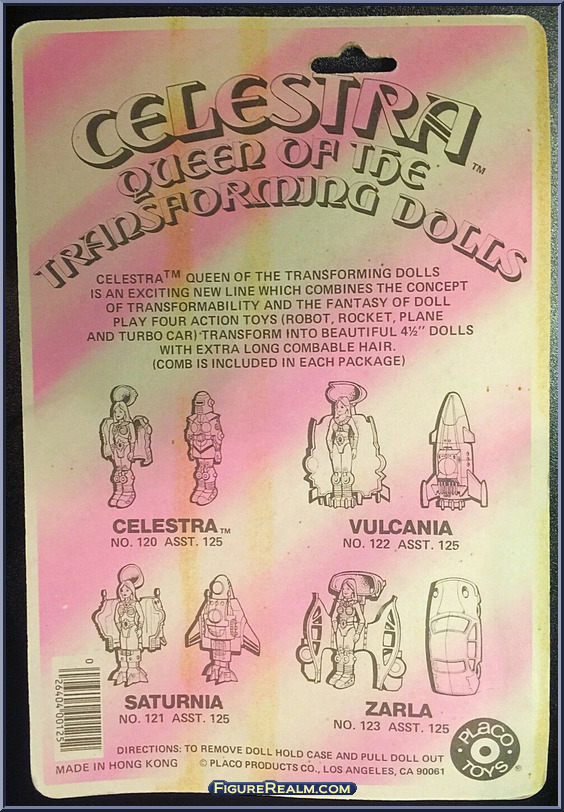 CELESTRA™
QUEEN OF THE
TRANSFORMING DOLLS
CELESTRA™ QUEEN OF THE TRANSFORMING DOLLS
IS AN EXCITING NEW LINE WHICH COMBINES THE CONCEPT
OF TRANSFORMABILITY AND THE FANTASY OF DOLL
PLAY FOUR ACTION TOYS (ROBOT, ROCKET, PLANE
AND TURBO CAR) TRANSFORM INTO BEAUTIFUL 4½" DOLLS
WITH EXTRA LONG COMBABLE HAIR.
(COMB IS INCLUDED IN EACH PACKAGE)
CELESTRA™
NO. 120 ASST. 125
VULCANIA
NO. 122 ASST. 125
SATURNIA
NO. 121 ASST. 125
ZARLA
NO. 123 ASST. 125
0
26404 00125
DIRECTIONS: TO REMOVE DOLL HOLD CASE AND PULL DOLL OUT
MADE IN HONG KONG
© PLACO PRODUCTS CO., LOS ANGELES, CA 90061
PLACO
TOYS
®
FIGUREREALM.COM